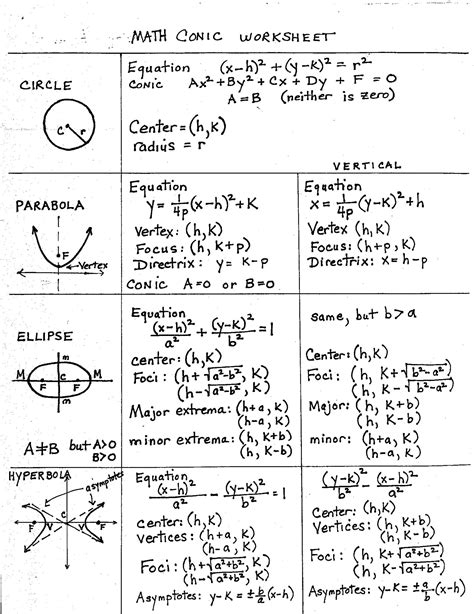 MATH CONIC WORKSHEET
CIRCLE
C r
Equation (x-h)² + (y-k)² = r²
CONIC Ax² + By² + Cx + Dy + F = 0
A = B (neither is zero)
Center = (h,k)
radius = r
VERTICAL
PARABOLA
F
Vertex
Equation
y = 1/4p (x-h)² + K
Vertex: (h,k)
Focus: (h, K+p)
Directrix: y = K-p
CONIC A=0 or B=0
Equation
x = 1/4p (y-K)² + h
Vertex (h,K)
Focus: (h+p, K)
Directrix: x = h-p
ELLIPSE
m
M F C F M
m
A≠B but A>0
B>0
Equation
(x-h)²/a² + (y-K)²/b² = 1
center: (h,K)
Foci: (h+√a²-b², K)
(h-√a²-b², K)
Major extrema: (h+a, K)
(h-a, K)
minor extrema: (h, K+b)
(h, K-b)
same, but b>a
Center: (h,K)
Foci: (h, K+√b²-a²)
(h, K-√b²-a²)
Major: (h, K+b)
(h, K-b)
minor: (h+a, K)
(h-a, K)
HYPERBOLA
asymptotes
C
F V V F
Equation
(x-h)²/a² - (y-K)²/b² = 1
center: (h,K)
vertices: (h+a, K)
(h-a, K)
Foci: (h+√a²+b², K)
(h-√a²+b², K)
Asymptotes: y-K = ±b/a (x-h)
(y-K)²/b² - (x-h)²/a²
Center: (h,K)
Vertices: (h, K+b)
(h, K-b)
Foci: (h, K+√a²+b²)
(h, K-√a²+b²)
Asymptotes: y-K = ±a/b (x-h)